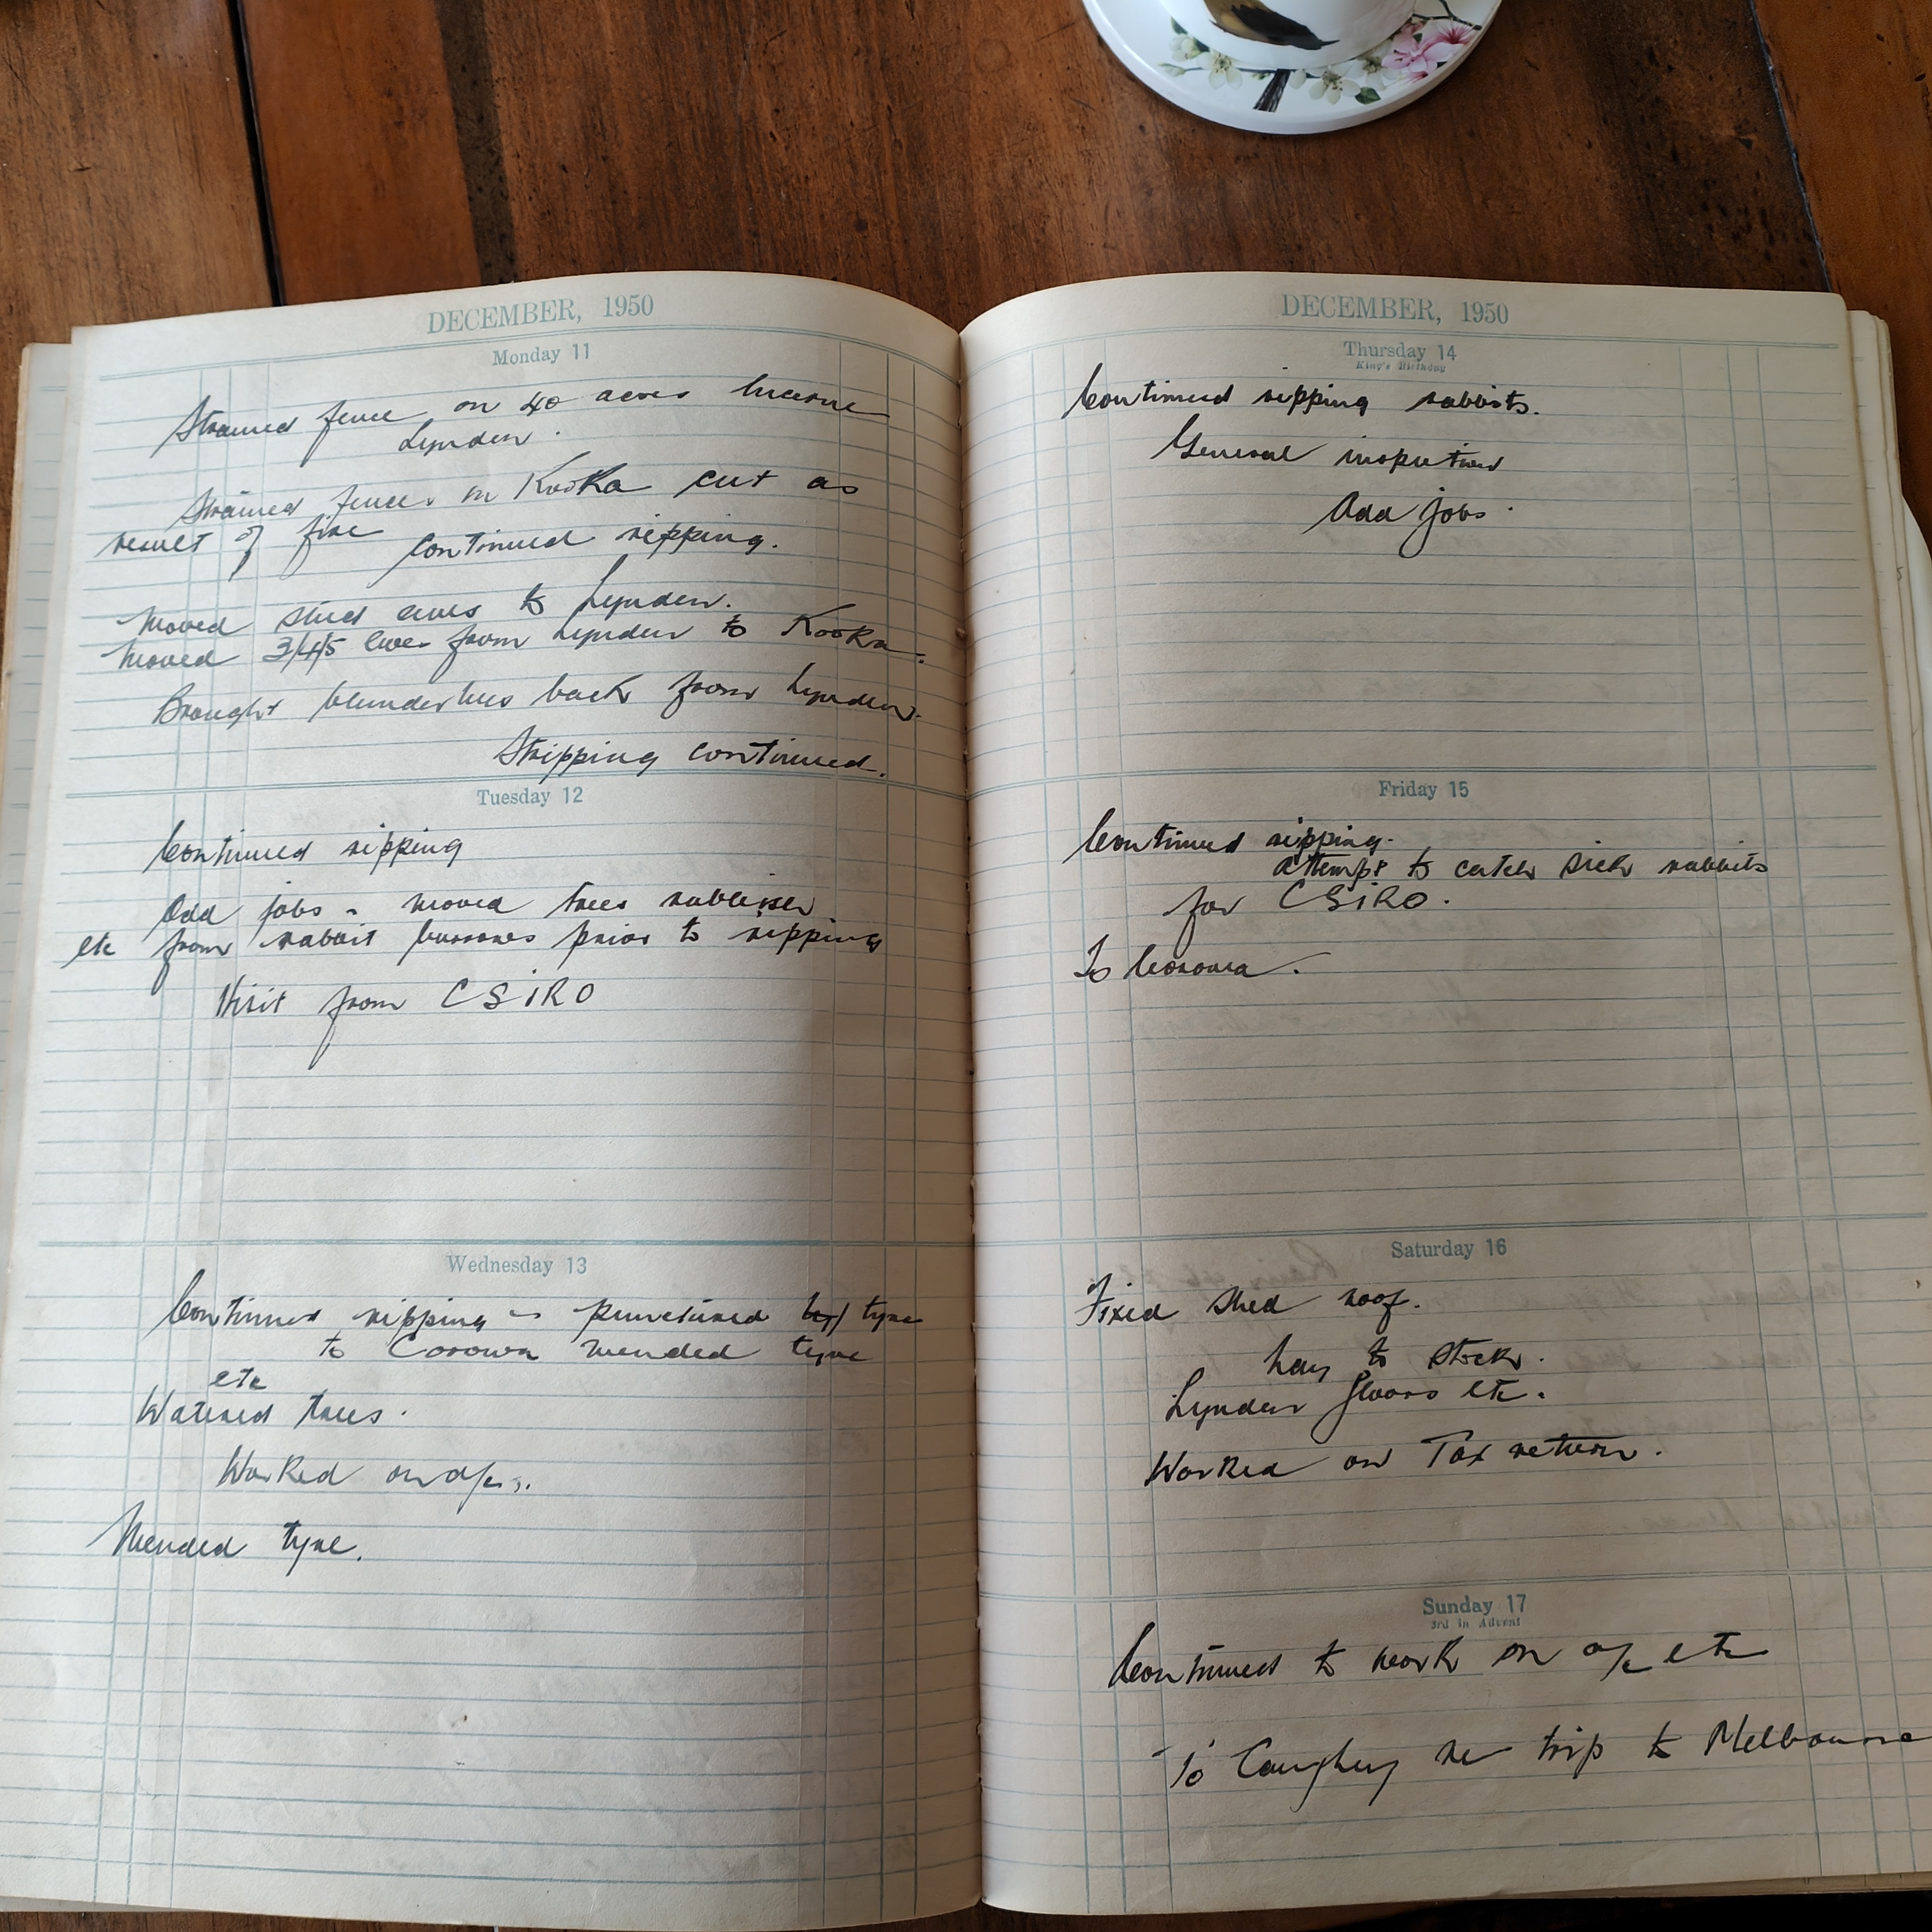 DECEMBER, 1950
Monday 11
Strained fence on 40 acres lucerne
Lynden.
Strained fences on Kooka cut as
result of fire
continued ripping.
Moved stud ewes to Lynden.
Moved 3/4/5 ewes from Lynden to Kooka.
Brought blunderbus back from Lynden.
Stripping continued.
Tuesday 12
Continued ripping
Odd jobs - moved trees rubbish
etc from rabbit burrows prior to ripping
Visit from CSIRO
Wednesday 13
Continued ripping - punctured tyre
to Corowa mended tyre
etc
Watered trees.
Worked on a/cs.
Mended tyre.
DECEMBER, 1950
Thursday 14
King's Birthday
Continued ripping rabbits.
General inspection
Odd jobs.
Friday 15
Continued ripping.
attempt to catch sick rabbits
for CSIRO.
To Corowa.
Saturday 16
Fixed shed roof.
hay to stock.
Lynden floors etc.
Worked on Tax return.
Sunday 17
3rd in Advent
Continued to work on a/c etc
To Caughey re trip to Melbourne